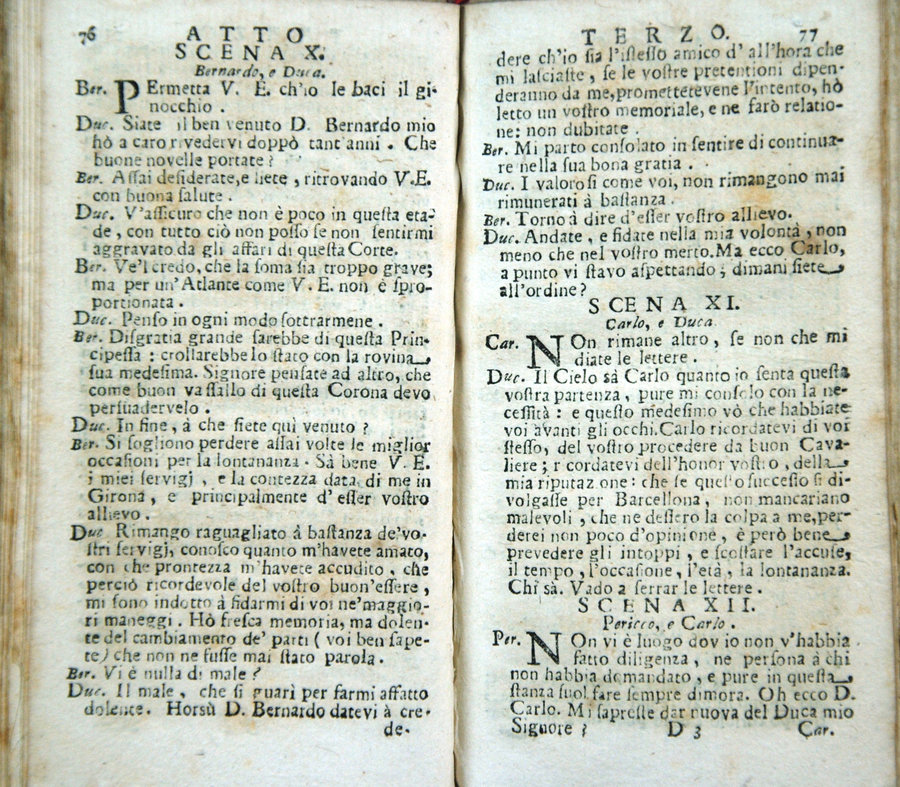 76 ATTO
SCENA X.
Bernardo, e Duca.
Ber. PErmetta V. E. ch'io le baci il gi-
nocchio .
Duc. Siate il ben venuto D. Bernardo mio
hò a caro rivedervi doppò tant'anni . Che
buone novelle portate ?
Ber. Aſſai deſiderate, e liete , ritrovando V.E.
con buona ſalute .
Duc. V'aſſicuro che non è poco in queſta eta-
de , con tutto ciò non poſſo ſe non ſentirmi
aggravato da gli affari di queſta Corte.
Ber. Ve'l credo, che la ſoma ſia troppo grave;
ma per un'Atlante come V. E. non è ſpro-
portionata .
Duc. Penſo in ogni modo ſottrarmene .
Ber. Diſgratia grande ſarebbe di queſta Prin-
cipeſſa : crollarebbe lo ſtato con la rovina
ſua medeſima. Signore penſate ad altro, che
come buon vaſſallo di queſta Corona devo
perſuadervelo .
Duc. In fine, à che ſiete qui venuto ?
Ber. Si ſogliono perdere aſſai volte le miglior
occaſioni per la lontananza . Sà bene V. E.
i miei ſervigj , e la contezza data di me in
Girona, e principalmente d' eſſer voſtro
allievo .
Duc Rimango raguagliato à baſtanza de'vo-
ſtri ſervigj, conoſco quanto m'havete amato,
con che prontezza m'havete accudito , che
perciò ricordevole del voſtro buon'eſſere ,
mi ſono indotto à fidarmi di voi ne'maggio-
ri maneggi . Hò freſca memoria, ma dolen-
te del cambiamento de' parti ( voi ben ſape-
te) che non ne fuſſe mai ſtato parola.
Ber. Vi è nulla di male ?
Duc. Il male , che ſi guarì per farmi affatto
dolente. Horsù D. Bernardo datevi à cre-
de-
TERZO. 77
dere ch'io ſia l'iſteſſo amico d' all'hora che
mi laſciaſte , ſe le voſtre pretentioni dipen-
deranno da me,promettetevene l'intento, hò
letto un voſtro memoriale, e ne farò relatio-
ne: non dubitate .
Ber. Mi parto conſolato in ſentire di continua-
re nella ſua bona gratia .
Duc. I valoroſi come voi, non rimangono mai
rimunerati à baſtanza .
Ber. Torno à dire d'eſſer voſtro allievo.
Duc. Andate , e fidate nella mia volontà , non
meno che nel voſtro merto. Ma ecco Carlo,
a punto vi ſtavo aſpettando ; dimani ſiete
all'ordine ?
SCENA XI.
Carlo, e Duca
Car. NOn rimane altro, ſe non che mi
diate le lettere .
Duc. Il Cielo sà Carlo quanto io ſenta queſta
voſtra partenza, pure mi conſolo con la ne-
ceſſità : e queſto medeſimo vò che habbiate
voi avanti gli occhi. Carlo ricordatevi di voi
ſteſſo, del voſtro procedere da buon Cava-
liere ; r cordatevi dell'honor voſtro , della
mia riputaz one: che ſe queſto ſucceſſo ſi di-
volgaſſe per Barcellona , non mancariano
malevoli , che ne deſſero la colpa a me, per-
derei non poco d'opinione , è però bene
prevedere gli intoppi , e ſcoſtare l'accuſe,
il tempo , l'occaſione, l'età , la lontananza.
Chi sà. Vado a ſerrar le lettere .
SCENA XII.
Pericco, e Carlo .
Per. NOn vi è luogo dov io non v'habbia
fatto diligenza , ne perſona à chi
non habbia domandato , e pure in queſta
ſtanza ſuol fare ſempre dimora. Oh ecco D.
Carlo. Mi ſapreſte dar nuova del Duca mio
Signore ? D 3 Car.